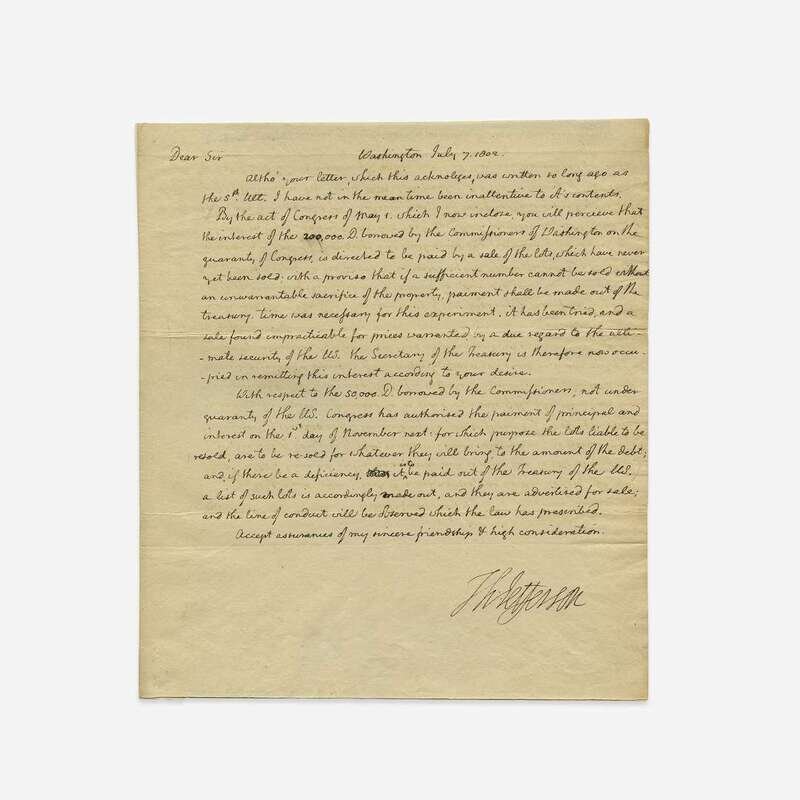 Dear Sir Washington July 7. 1802.
Altho' your letter, which this acknoleges, was written so long ago as
the 5th. Ult. I have not in the mean time been inattentive to it's contents.
By the act of Congress of May 1. which I now inclose, you will percieve that
the interest of the 200,000. D. borrowed by the Commissioners of Washington on the
guaranty of Congress, is directed to be paid by a sale of the lots, which have never
yet been sold: with a proviso that if a sufficient number cannot be sold without
an unwarrantable sacrifice of the property, paiment shall be made out of the
treasury. time was necessary for this experiment. it has been tried, and a
sale found impracticable for prices warranted by a due regard to the ulti-
-mate security of the US. the Secretary of the Treasury is therefore now occu-
-pied in remitting this interest according to your desire.
With respect to the 50,000. D. borrowed by the Commissioners, not under
guaranty of the US. Congress has authorised the paiment of principal and
interest on the 1st. day of November next: for which purpose the lots liable to be
resold, are to be re-sold for whatever they will bring, to the amount of the debt;
and, if there be a deficiency, it is to be paid out of the Treasury of the US.
a list of such lots is accordingly made out, and they are advertised for sale;
and the line of conduct will be observed which the law has prescribed.
Accept assurances of my sincere friendship & high consideration.
Th: Jefferson